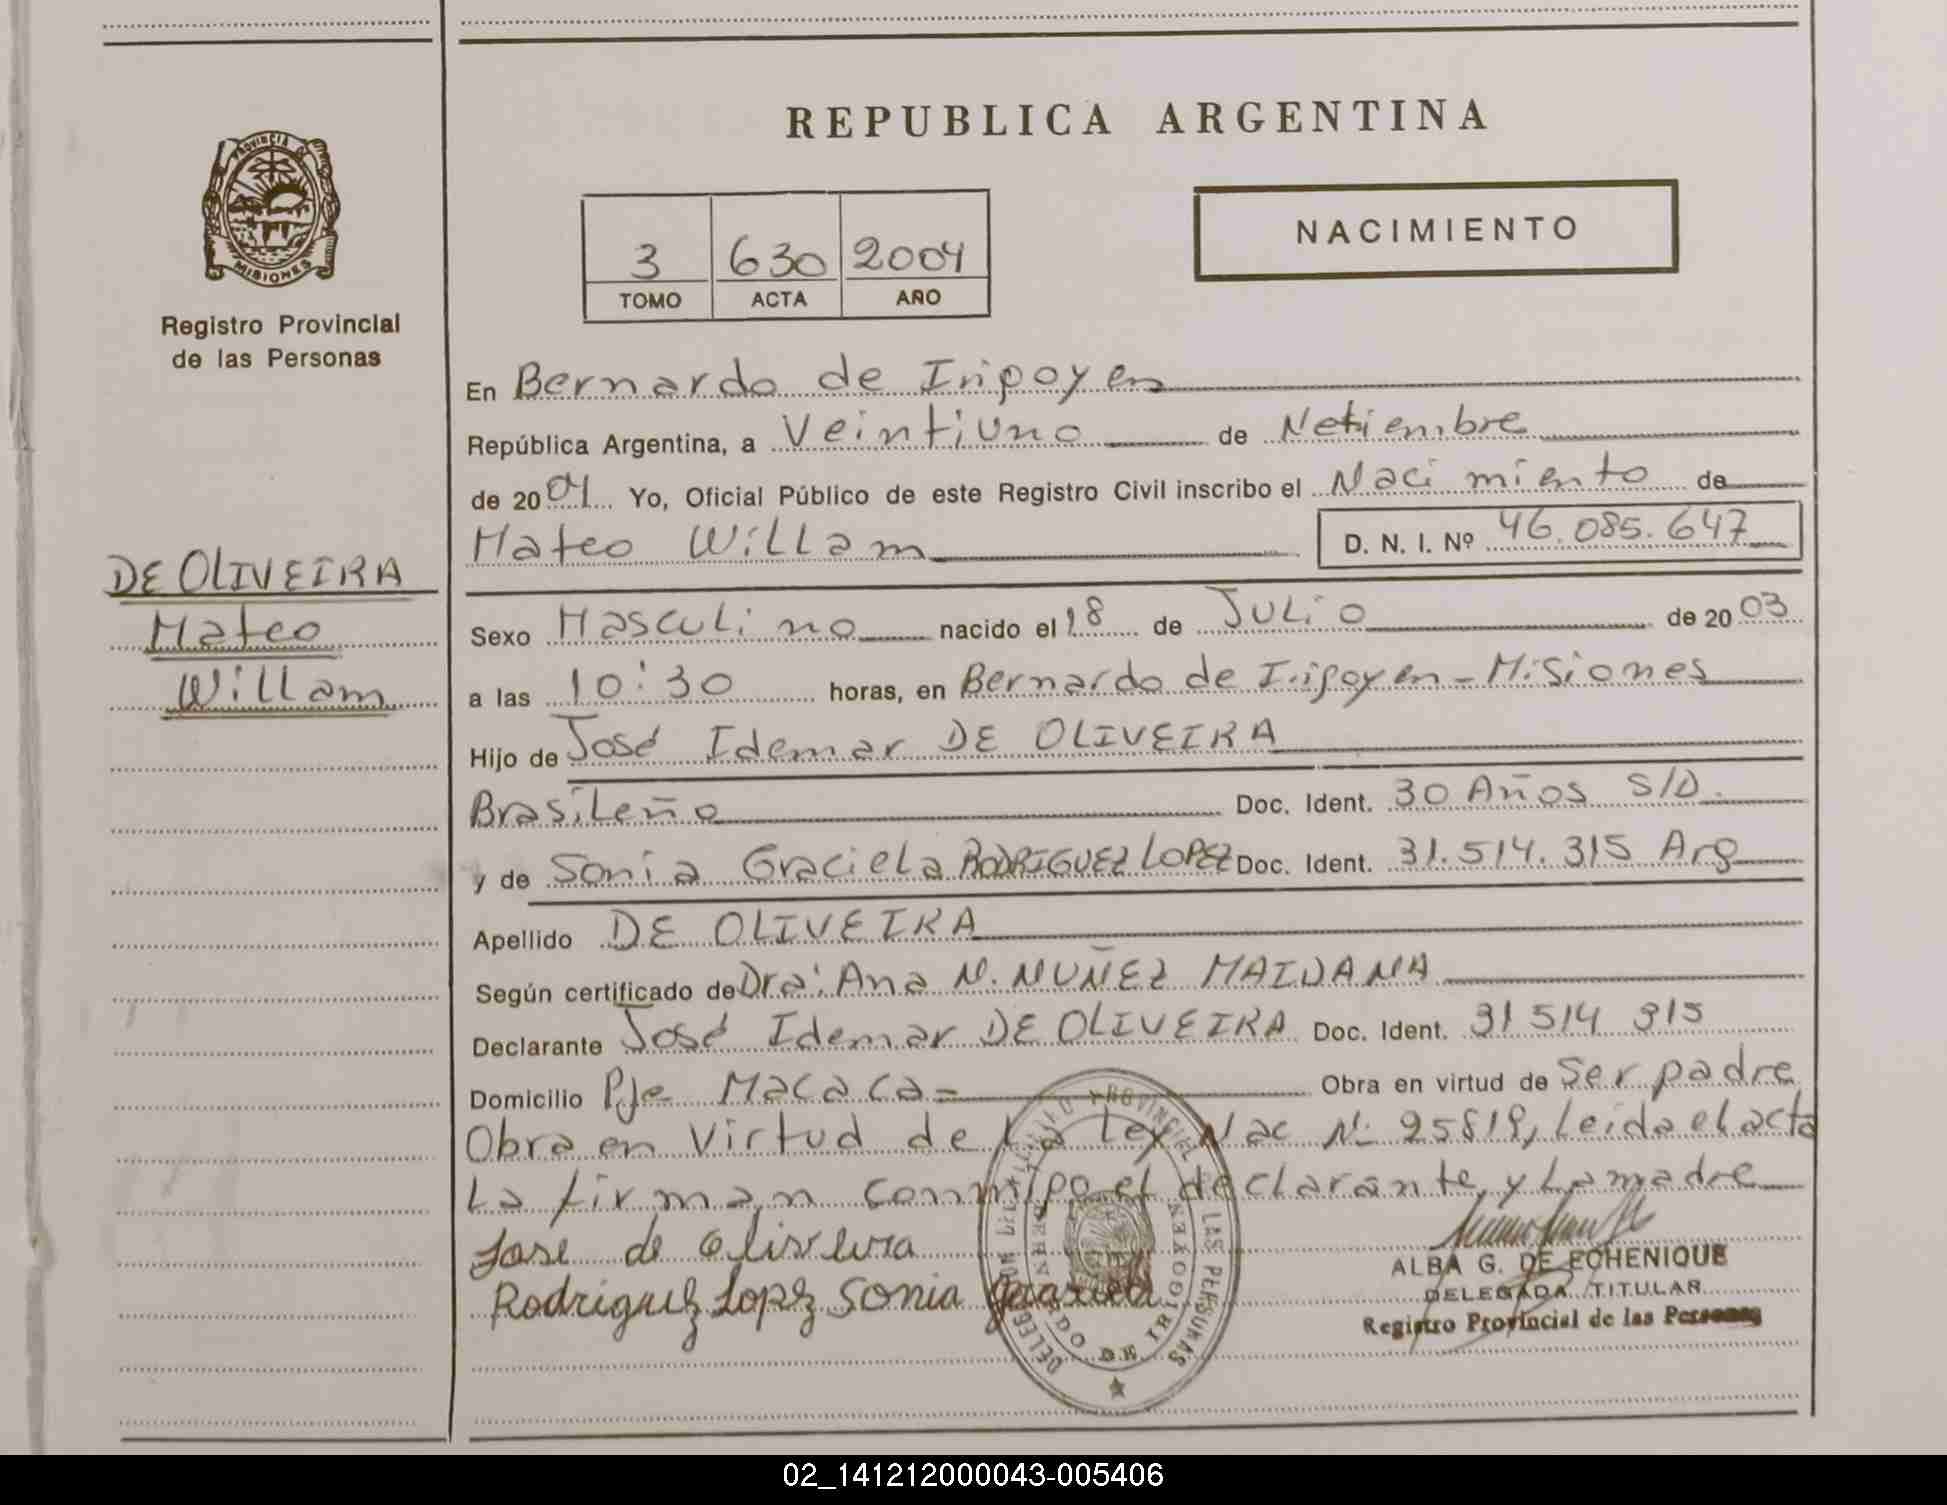 REPUBLICA ARGENTINA
PROVINCIA DE
MISIONES
Registro Provincial
de las Personas
3 630 2004
TOMO ACTA AÑO
NACIMIENTO
En Bernardo de Iripoyen
República Argentina, a Veintiuno de Setiembre
de 2004 Yo, Oficial Público de este Registro Civil inscribo el Nacimiento de
Mateo Willam D. N. I. Nº 46.085.647
DE OLIVEIRA
Mateo
Willam
Sexo Masculino nacido el 18 de Julio de 2003
a las 10:30 horas, en Bernardo de Iripoyen - Misiones
Hijo de José Idemar DE OLIVEIRA
Brasileño Doc. Ident. 30 Años S/D.
y de Sonia Graciela RODRIGUEZ LOPEZ Doc. Ident. 31.514.315 Arg
Apellido DE OLIVEIRA
Según certificado de Dra: Ana N. NUÑEZ MAIDANA
Declarante José Idemar DE OLIVEIRA Doc. Ident. 31 514 315
Domicilio Pje Macaca= Obra en virtud de Ser padre
Obra en Virtud de La Ley Nac Nº 25819, Leida el acta
La firman conmipo el declarante y La madre
Jose de Oliveira
Rodriguez Lopez Sonia Graciela
PROVINCIAL DE LAS PERSONAS
DELEGACION
DE IRIGOYEN
ALBA G. DE ECHENIQUE
DELEGADA TITULAR
Registro Provincial de las Personas
02_141212000043-005406